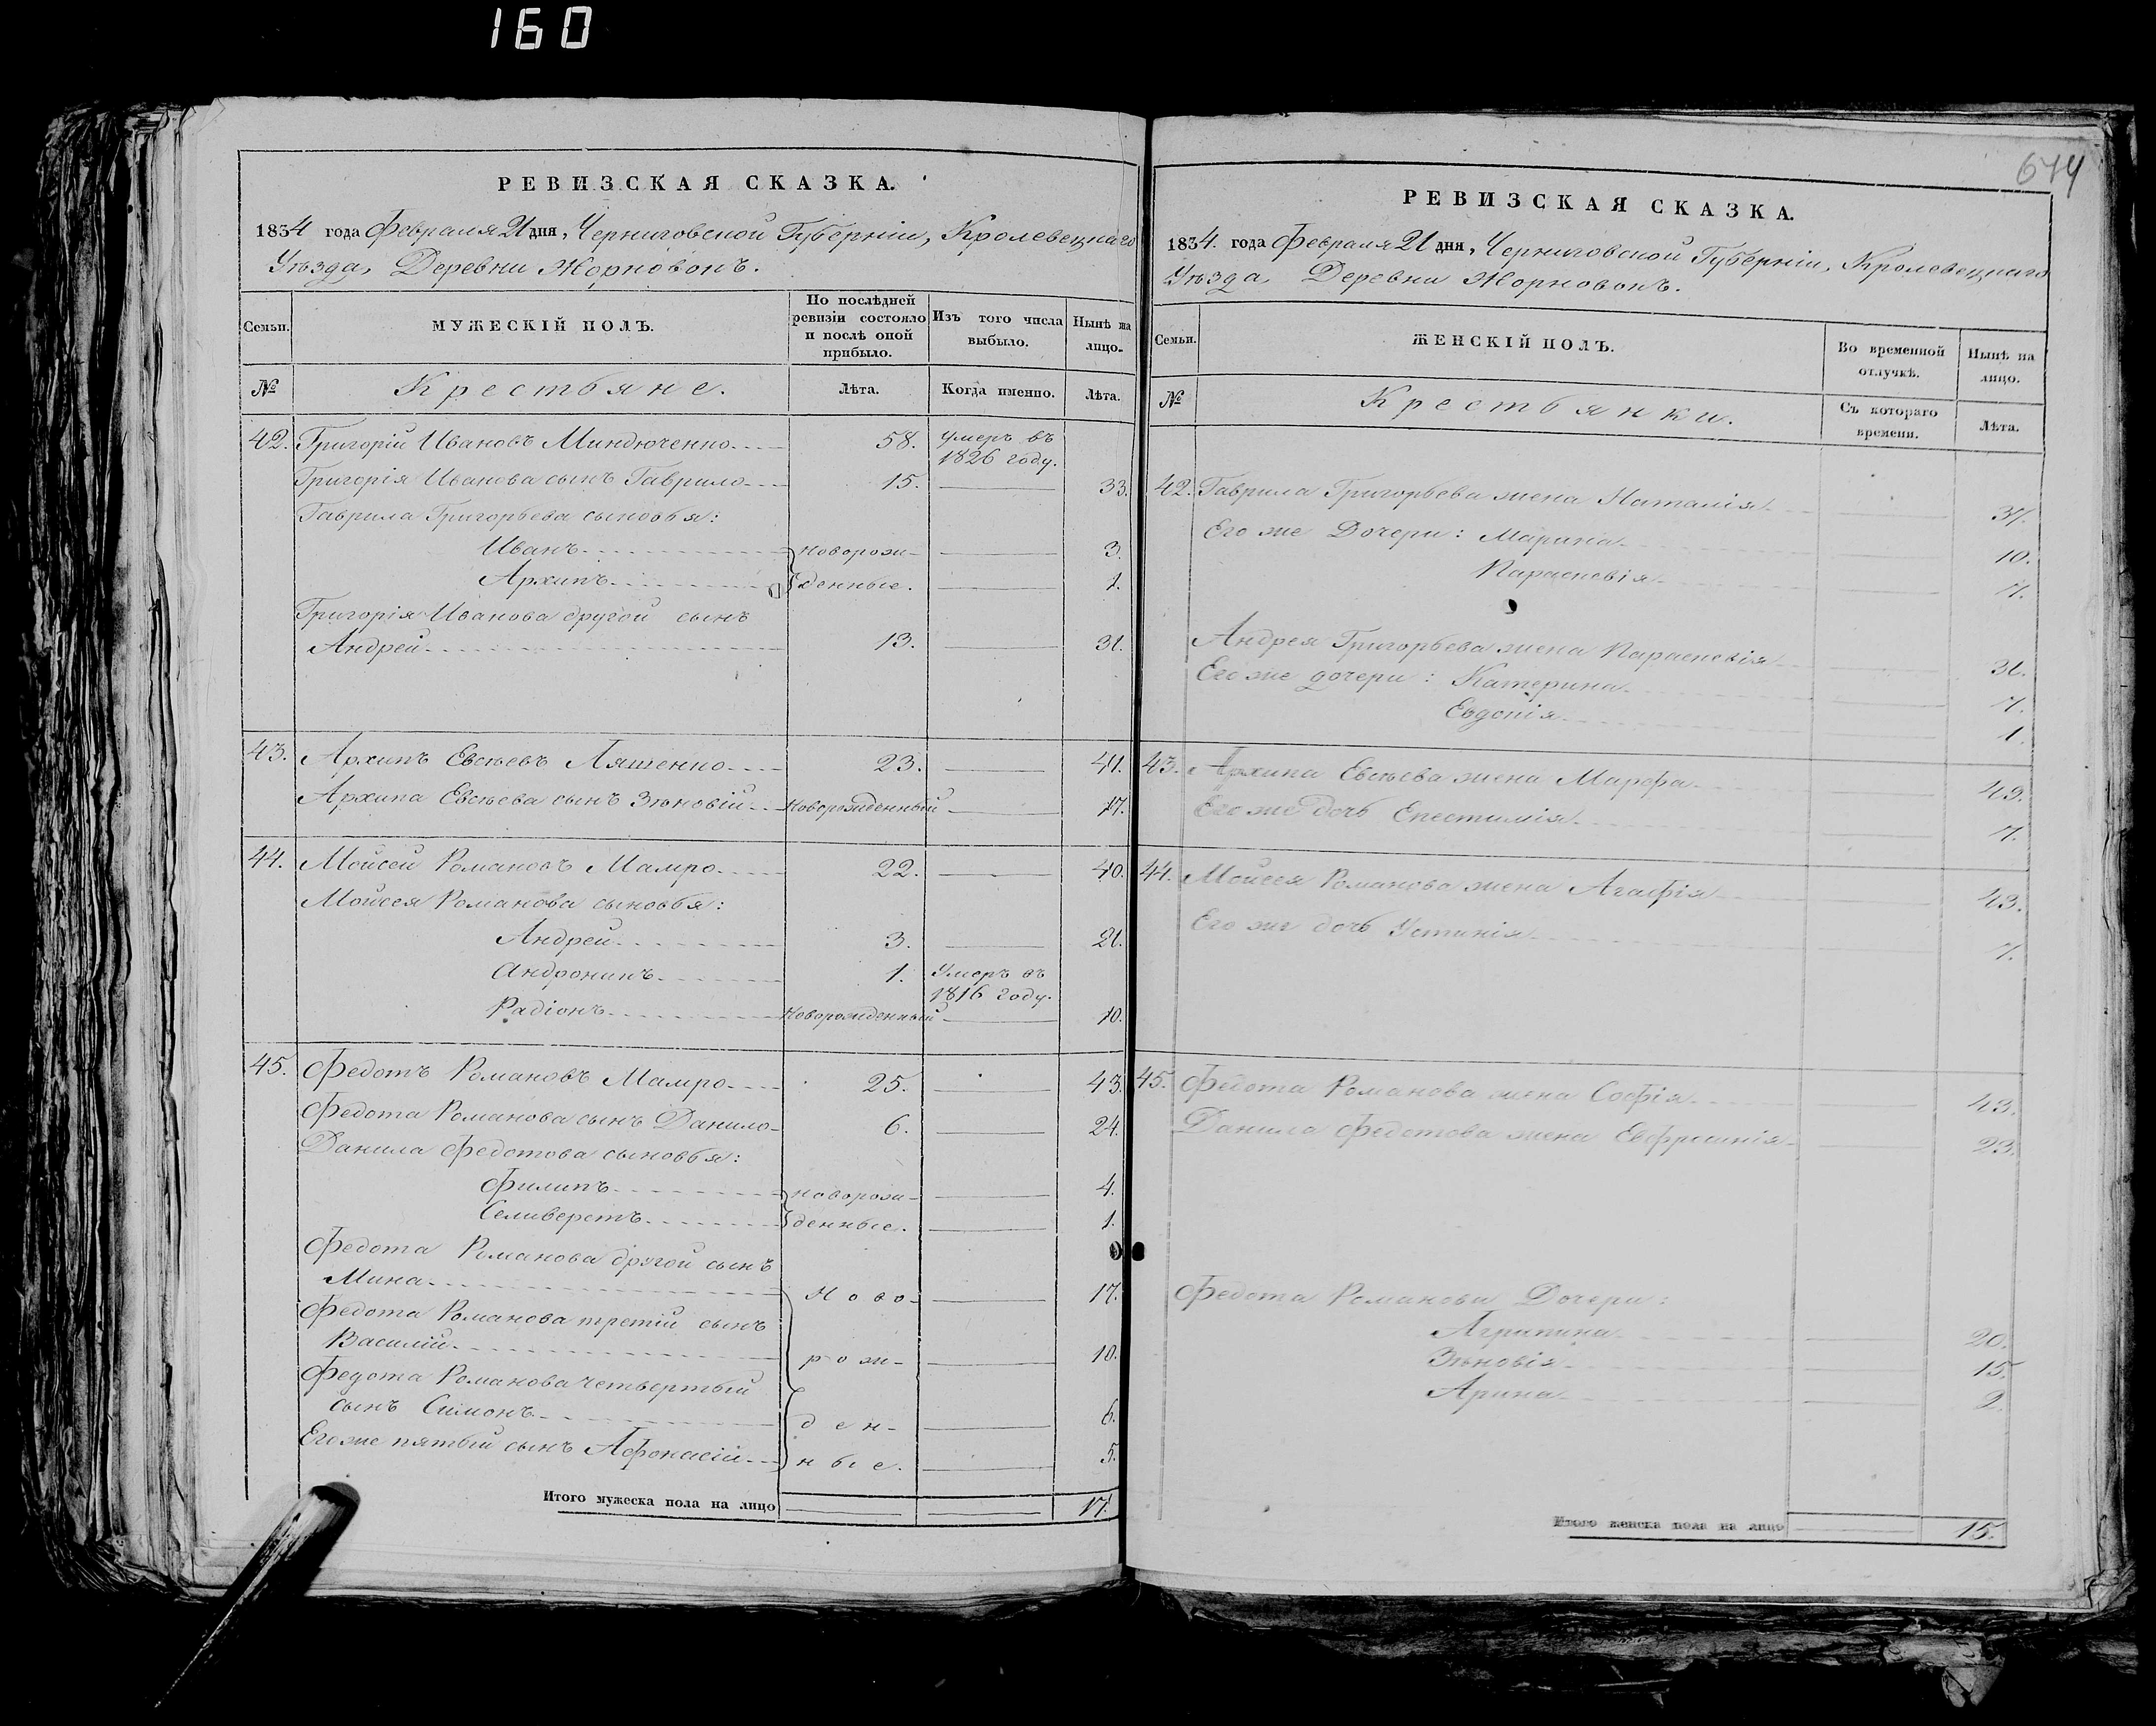 160
РЕВИЗСКАЯ СКАЗКА.
1834 года Февраля 21 дня, Черниговской Губерніи, Кролевецкаго
Уѣзда, Деревни Жорновокъ.
Семьи.
МУЖЕСКІЙ ПОЛЪ.
По послѣдней ревизіи состояло и послѣ оной прибыло.
Изъ того числа выбыло.
Нынѣ на лицо.
№ Крестьяне. Лѣта. Когда именно. Лѣта.
42. Григорій Ивановъ Миндюченко 58. умеръ въ 1826 году.
Григорія Иванова сынъ Гаврило 15. 33.
Гаврила Григорьева сыновья:
Иванъ новорож- 3.
Архипъ денные. 1.
Григорія Иванова другой сынъ
Андрей 13. 31.
43. Архипъ Евсѣевъ Ляшенко 23. 41.
Архипа Евсѣева сынъ Зѣновій Новорожденный 17.
44. Мойсей Романовъ Мамро 22. 40.
Мойсея Романова сыновья:
Андрей 3. 21.
Андроникъ 1. Умеръ въ 1816 году.
Радіонъ Новорожденный 10.
45. Федотъ Романовъ Мамро 25. 43.
Федота Романова сынъ Данило 6. 24.
Данила Федотова сыновья:
Филипъ новорож- 4.
Селиверстъ денные. 1.
Федота Романова другой сынъ
Мина Ново- 17.
Федота Романова третій сынъ
Василій рож- 10.
Федота Романова четвертый
сынъ Симонъ ден- 6.
Его же пятый сынъ Афонасій ные. 5.
Итого мужеска пола на лицо 17.
РЕВИЗСКАЯ СКАЗКА.
1834. года Февраля 21 дня, Черниговской Губерніи, Кролевецкаго
Уѣзда, Деревни Жорновокъ.
Семьи.
ЖЕНСКІЙ ПОЛЪ.
Во временной отлучкѣ.
Нынѣ на лицо.
№ Крестьянки. Съ котораго времени. Лѣта.
42. Гаврила Григорьева жена Наталія 37.
Его же Дочери: Марина 10.
Параскевія 7.
Андрея Григорьева жена Параскевія 31.
Его же дочери: Катерина 7.
Евдокія 1.
43. Архипа Евсѣева жена Марфа 49.
Его же дочь Епестимія 7.
44. Мойсея Романова жена Агафія 43.
Его же дочь Устинія 7.
45. Федота Романова жена Софія 43.
Данила Федотова жена Евфросинія 23.
Федота Романова Дочери:
Агрипина 20.
Зѣновія 15.
Арина 2.
Итого женска пола на лицо 15.